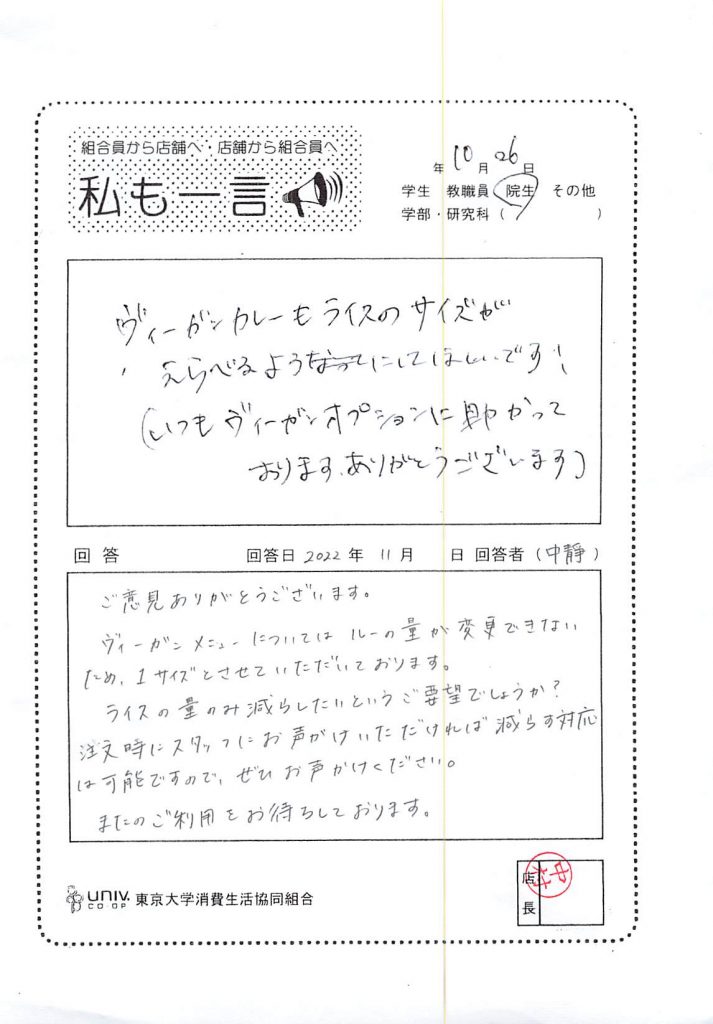 組合員から店舗へ・店舗から組合員へ
私も一言
年 10 月 26 日
学生 教職員 院生 その他
学部・研究科 ( )
ヴィーガンカレーもライスのサイズが
えらべるようにしてほしいです!
(いつもヴィーガンオプションに助かって
おります、ありがとうございます)
回答 回答日 2022 年 11 月 日 回答者 (中靜)
ご意見ありがとうございます。
ヴィーガンメニューについてはルーの量が変更できない
ため、1サイズとさせていただいております。
ライスの量のみ減らしたいというご要望でしょうか?
注文時にスタッフにお声がけいただければ減らす対応
は可能ですので、ぜひお声かけください。
またのご利用をお待ちしております。
UNIV. CO-OP 東京大学消費生活協同組合
店長
中村